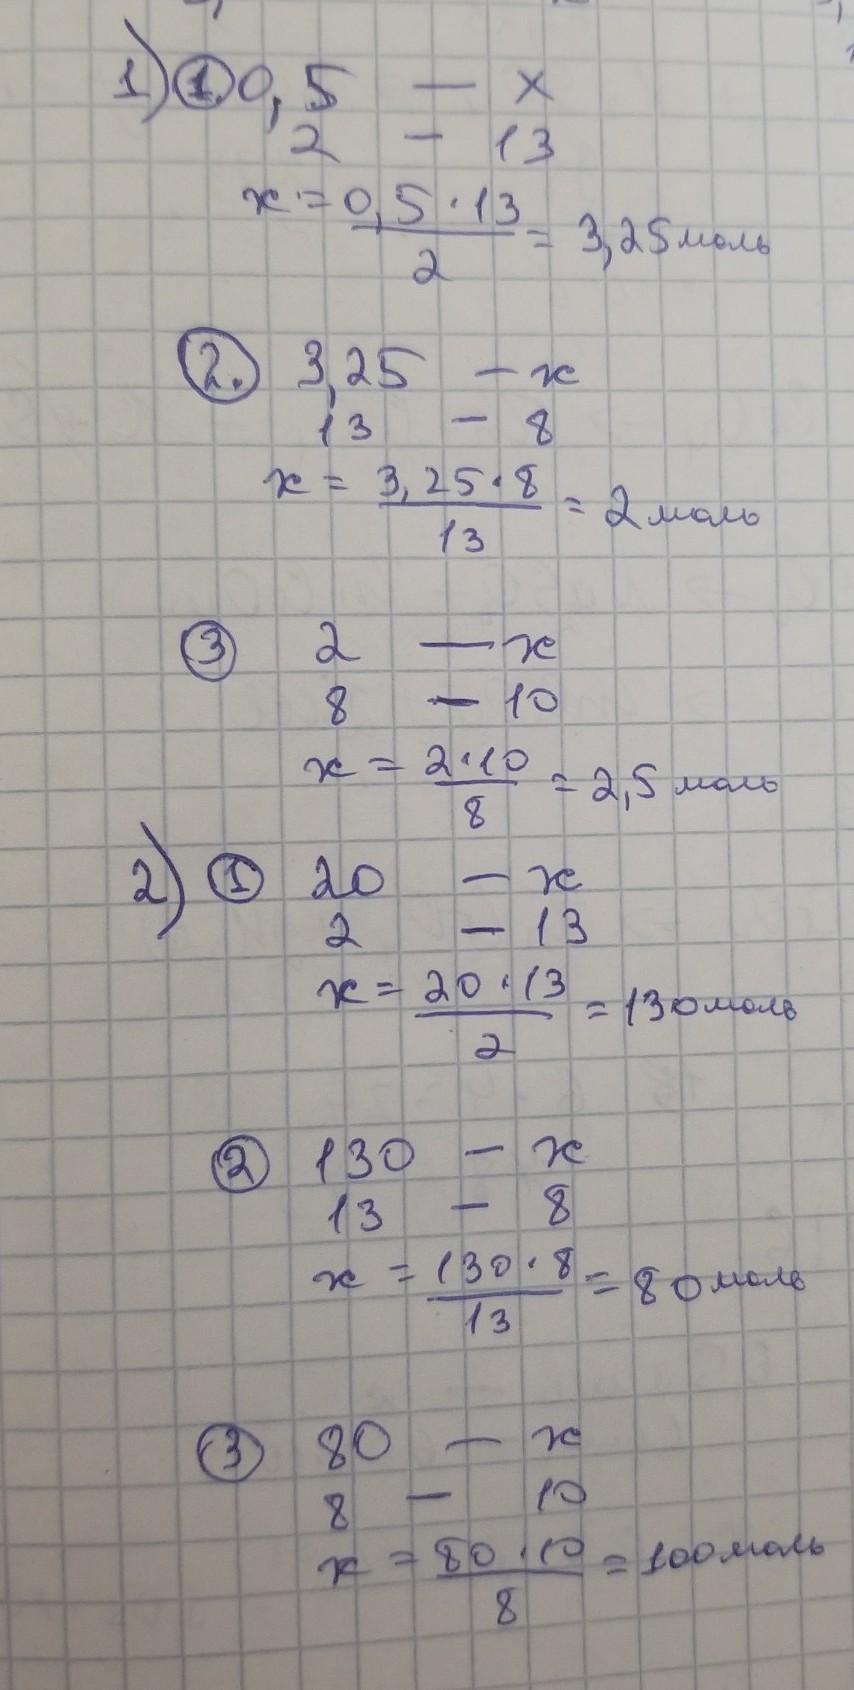 1) 1. 0,5 — x
2 — 13
x = 0,5·13 / 2 = 3,25 моль
2. 3,25 — x
13 — 8
x = 3,25·8 / 13 = 2 моль
3 2 — x
8 — 10
x = 2·10 / 8 = 2,5 моль
2) 1 20 — x
2 — 13
x = 20·13 / 2 = 130 моль
2 130 — x
13 — 8
x = 130·8 / 13 = 80 моль
3 80 — x
8 — 10
x = 80·10 / 8 = 100 моль